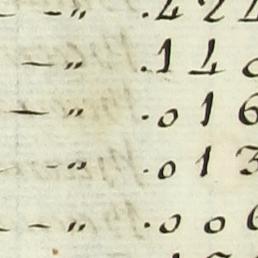 — „ .424
— „ .140
— „ .016
— „ .013
— „ .006